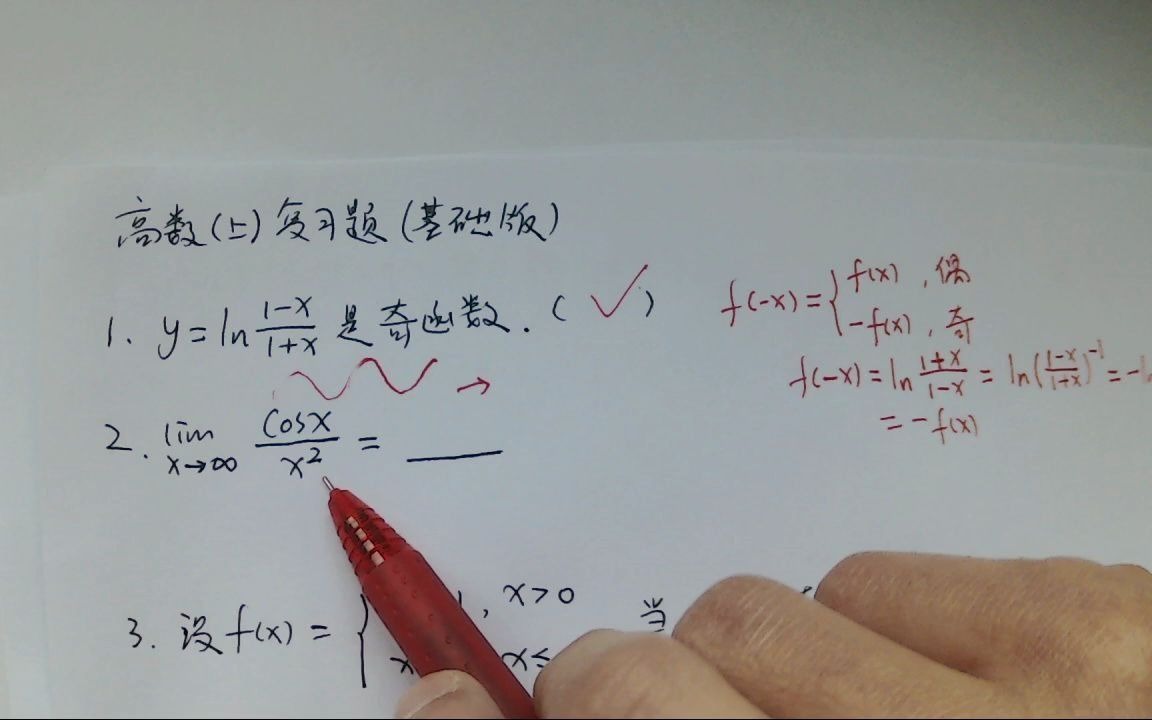 高数(上)复习题(基础版)
1. y=ln (1-x)/(1+x) 是奇函数. (✓)
f(-x)={f(x), 偶
-f(x), 奇
f(-x)=ln (1+x)/(1-x) = ln((1-x)/(1+x))⁻¹ = -
= -f(x)
→
2. lim x→∞ cosx/x² = ____
3. 设 f(x) = { , x>0
x x≤
当